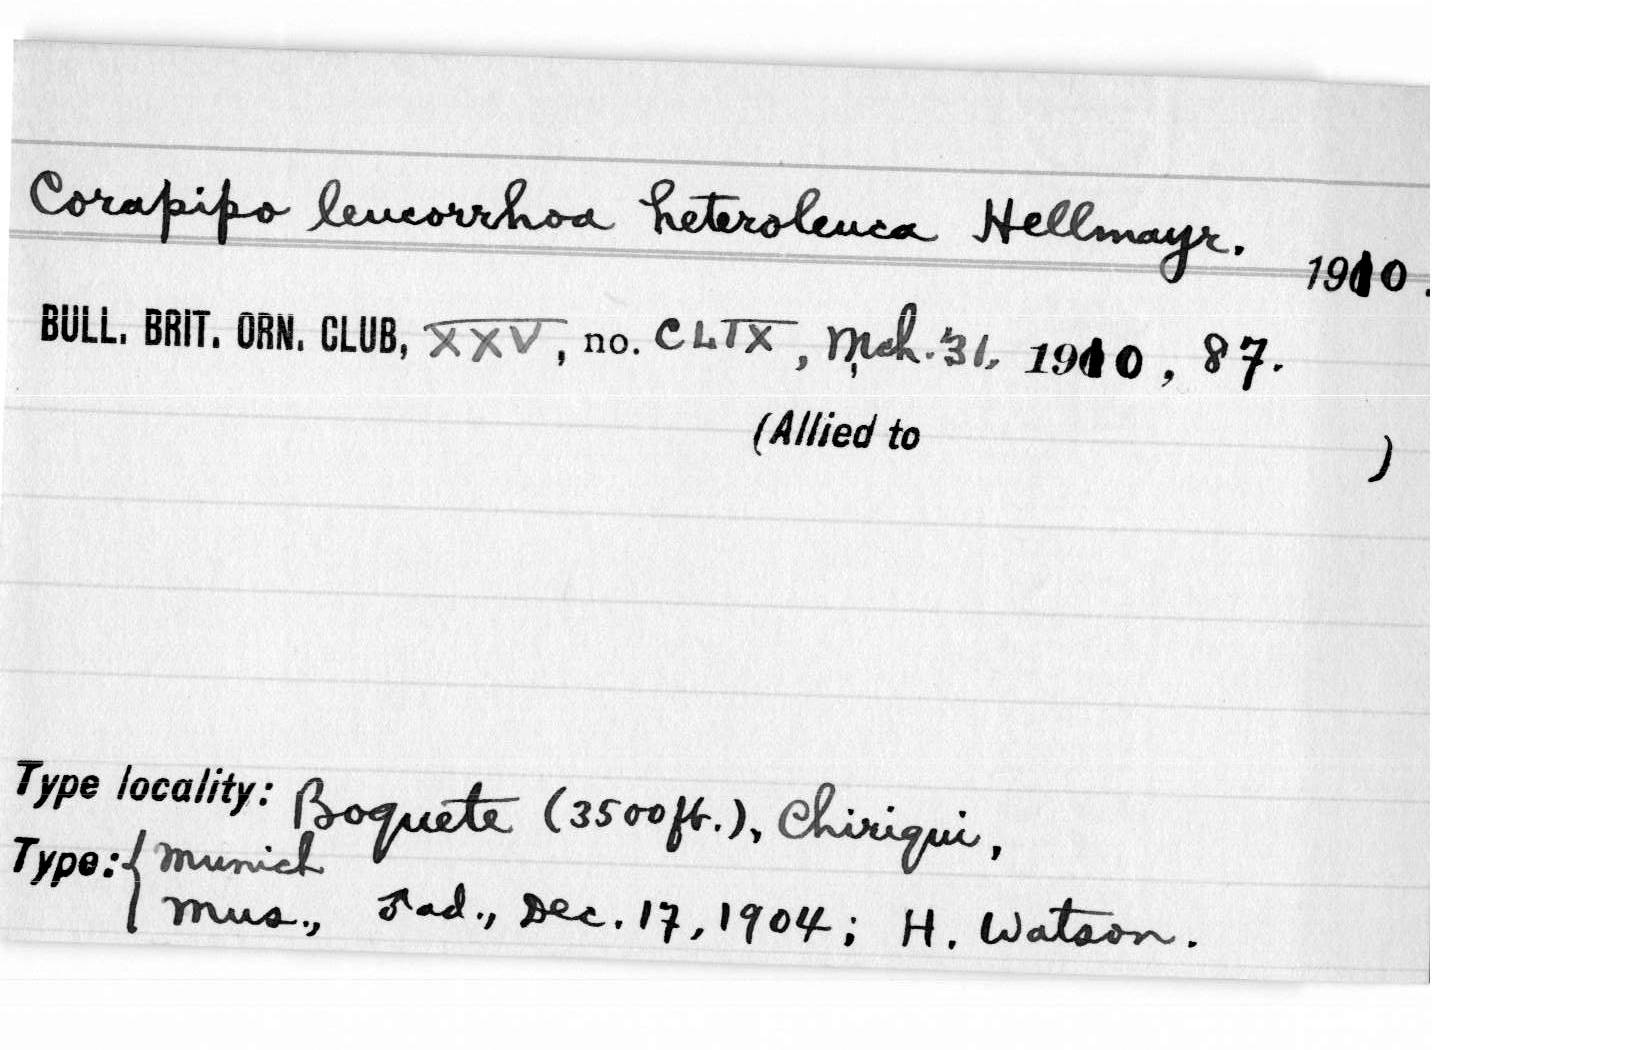 Corapipo leucorrhoa heteroleuca Hellmayr. 1910.
BULL. BRIT. ORN. CLUB, XXV, no. CLIX, Mch. 31, 1910, 87.
(Allied to )
Type locality: Boquete (3500ft.), Chiriqui,
Type: { Munich
Mus., ♂ ad., Dec. 17, 1904; H. Watson.